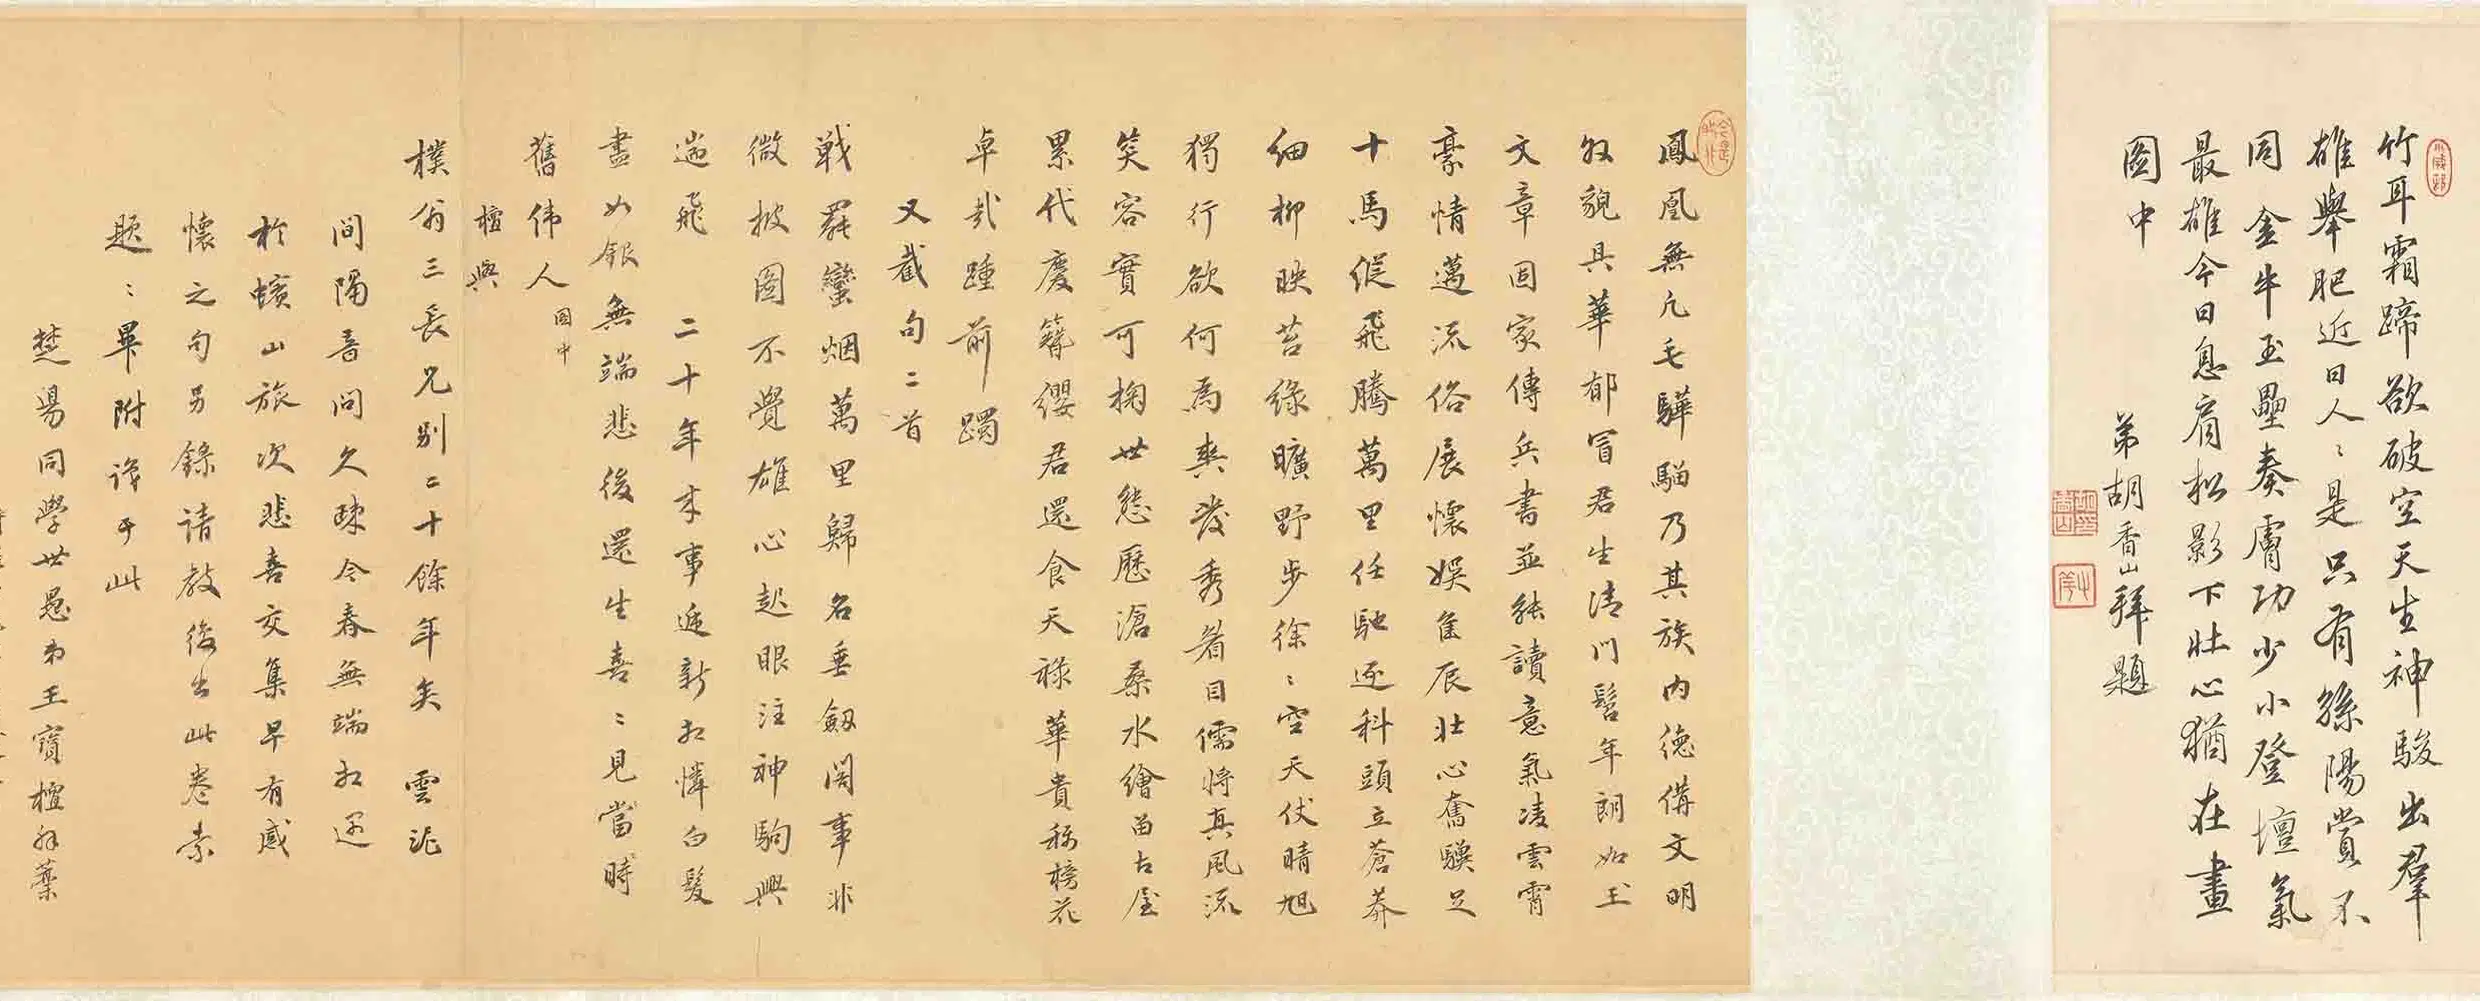 竹耳霜蹄欲破空天生神駿出羣
雄舉肥近日人〻是只有孫陽賞不
同 金牛玉壘奏膚功少小登壇氣
最雄今日息肩松影下壯心猶在畫
圖中
弟胡香山拜題
鳳凰無凡毛驊騮乃其族内德備文明
外貌具華郁冒君生清門髫年朗如玉
文章固家傳兵書並能讀意氣凌雲霄
豪情邁流俗展懷娱隹辰壯心奮驥足
十馬從飛騰萬里任馳逐科頭立蒼莽
細柳映苔綠曠野步徐〻空天伏晴旭
獨行欲何爲爽發秀眉目儒將真風流
笑容實可掬世態歷滄桑水繪留古屋
累代慶簪纓君還食天祿華貴稱榜花
卓哉踵前躅
又截句二首
戰罷蠻烟萬里歸名垂劔閣事非
微披圖不覺雄心起眼注神駒興
遄飛 二十年来事遞新相憐白髮
盡如銀無端悲後還生喜〻見當時
舊伟人
圖中
檀與
樸翁三長兄别二十餘年矣 雲泥
間隔音問久疎今春無端相遇
於蠙山旅次悲喜交集早有感
懷之句另錄請教後出此卷索
題〻畢附識于此
楚暘同學世愚弟王寶檀拜藁